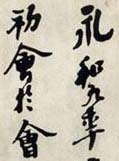 永和九年
初會於會